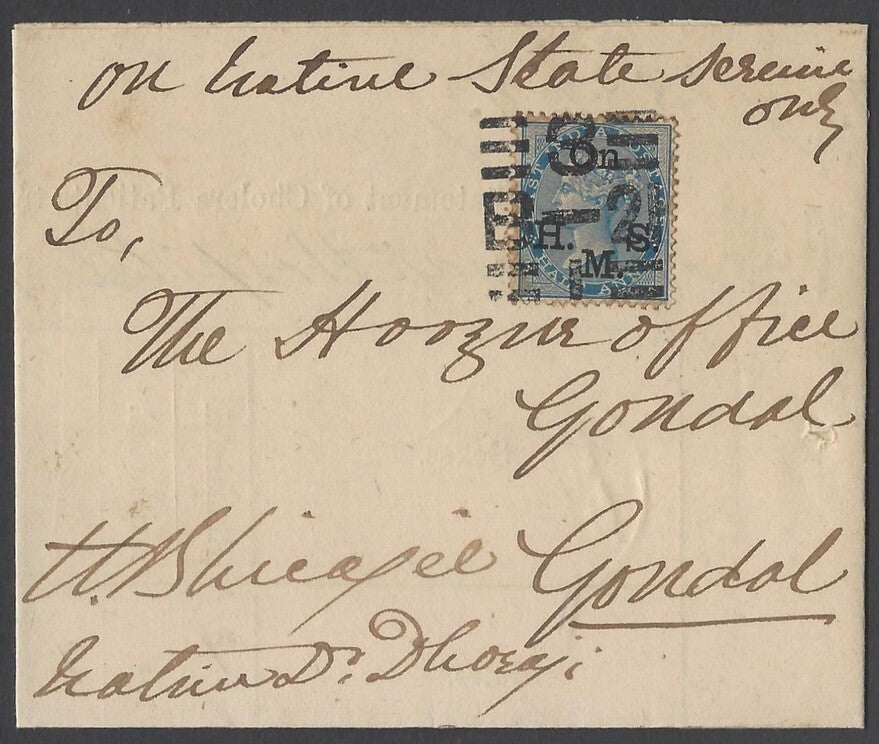 On Native State Service
only
On
H. S.
M.
EAST INDIA POSTAGE
HALF ANNA
3
B-2
To,
The Hoozur office
Gondal
H. Bhicajee Gondal
Native Dr. Dhoraji